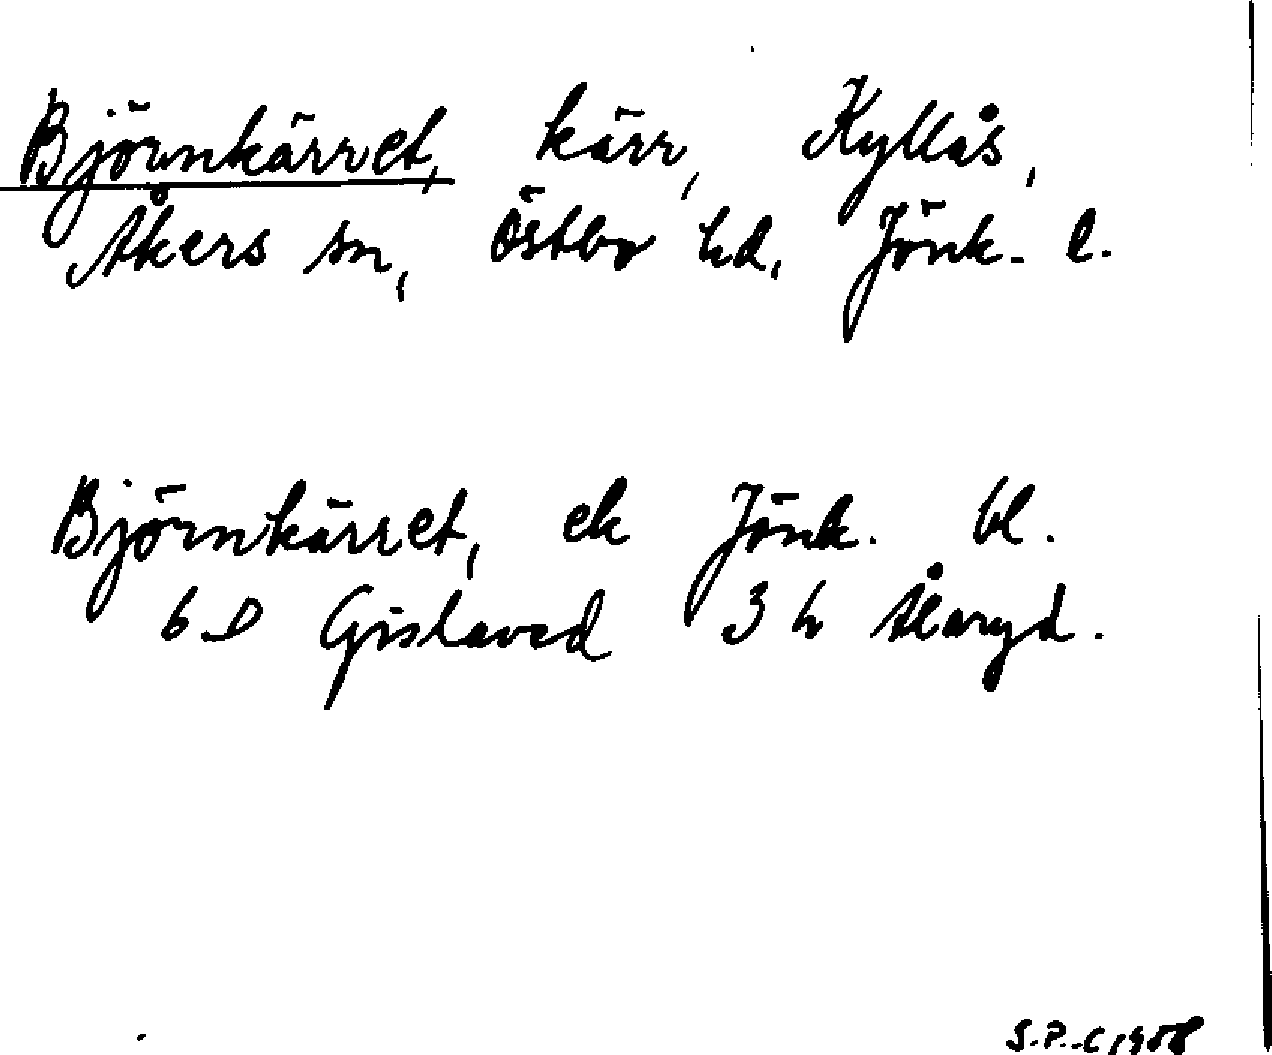 Björnkärret, kärr, Kyllås,
Åkers sn, Östbo hd, Jönk. l.
Björnkärret, ek Jönk. bl.
6 D Gislaved 3 h Ålaryd.
S.P.-C 1958